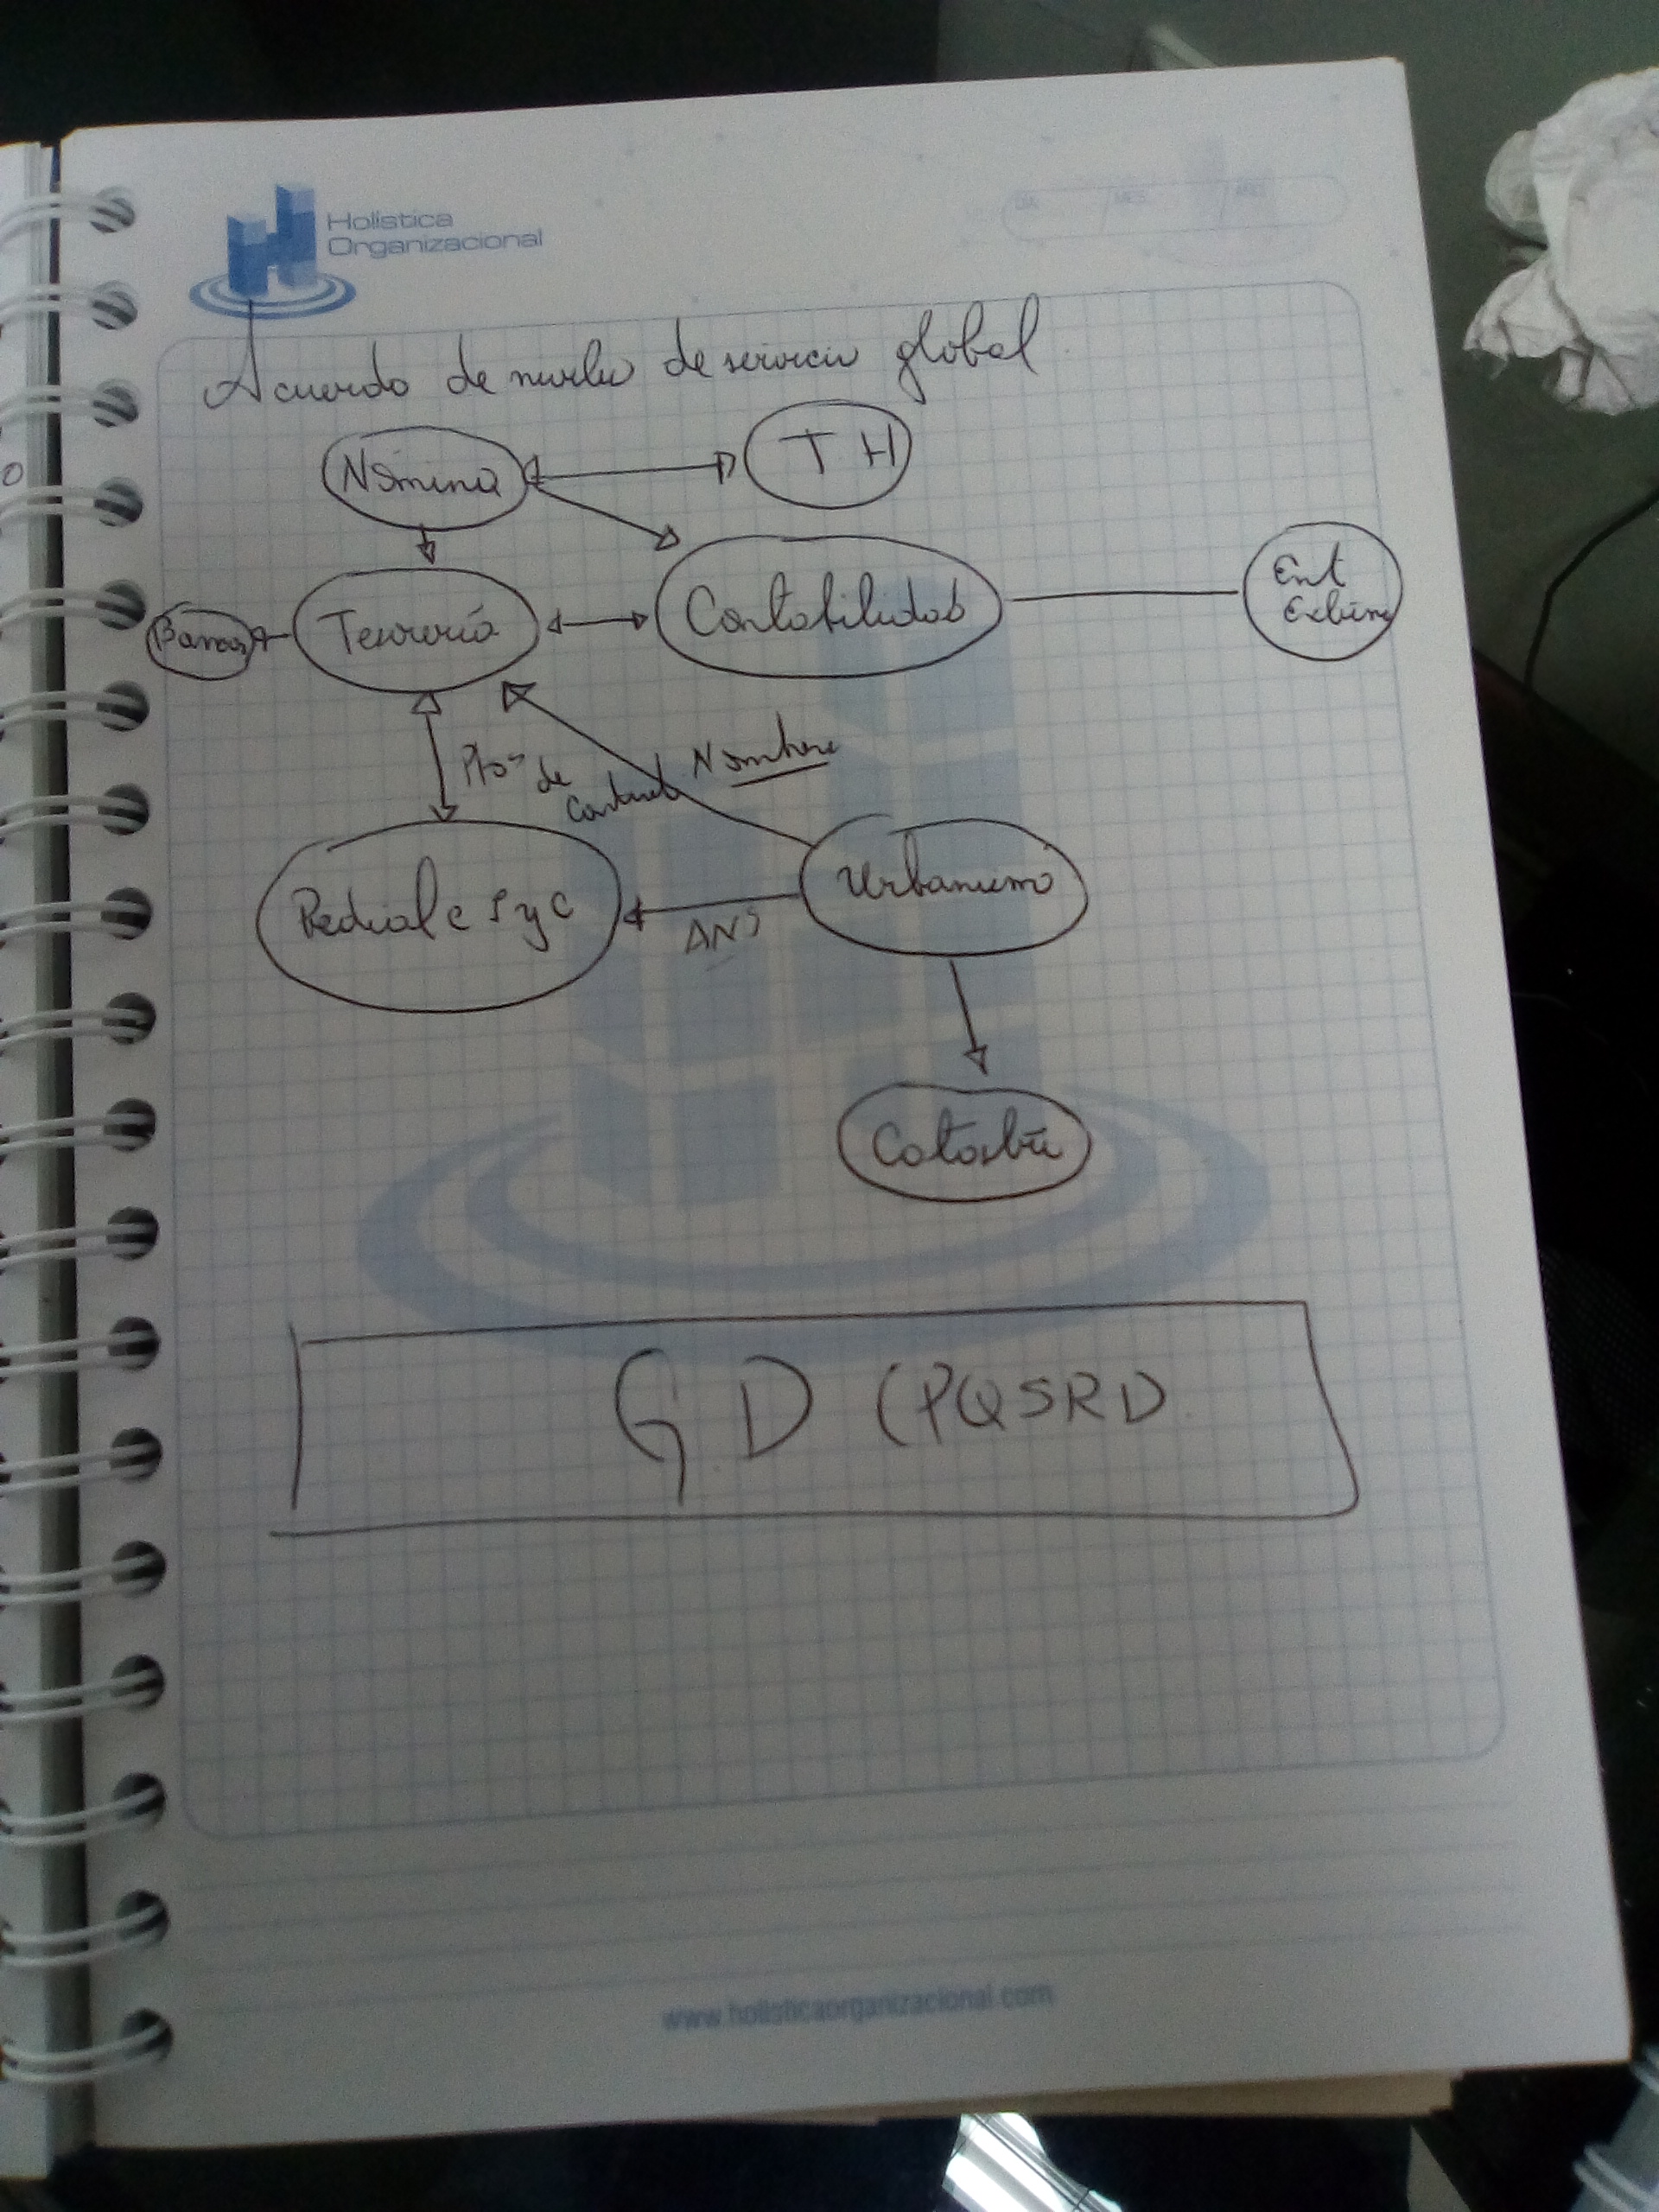 Holística
Organizacional
DÍA / MES / AÑO
Acuerdo de niveles de servicio global
Nómina
T H
Bancos
Tesorería
Contabilidad
Ent
Externa
Ptos de
Contacto
Nombre
Predial e IyC
ANS
Urbanismo
Catastro
GD (PQSRD
www.holisticaorganizacional.com